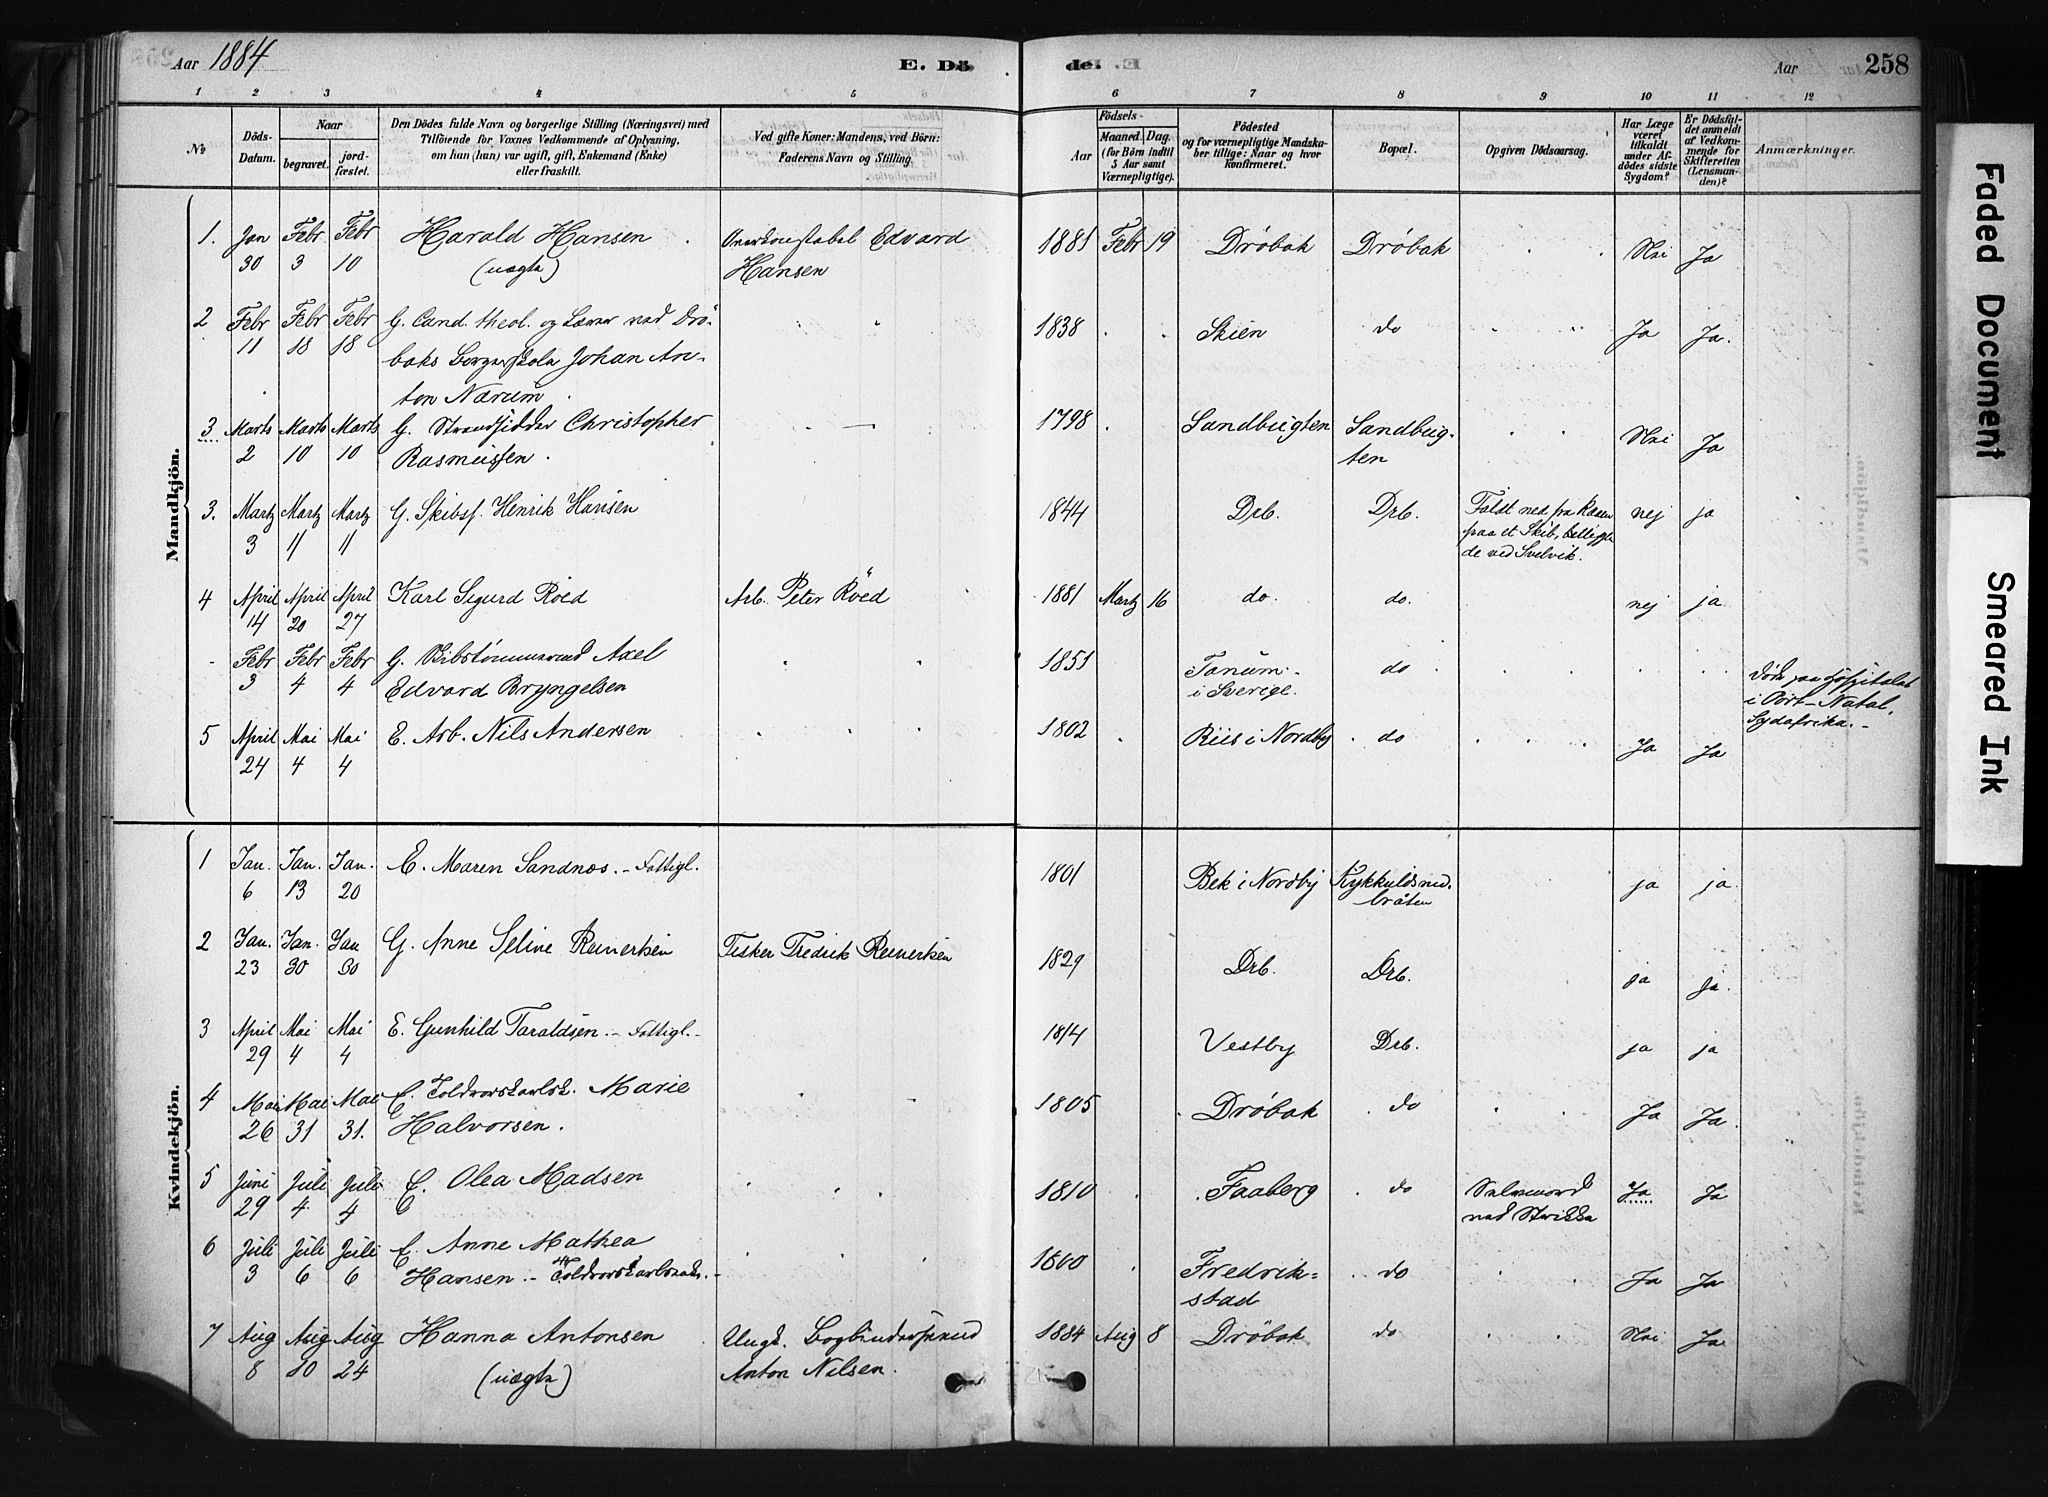 Aar 1884
E. Dö
de.
Aar
258
1 2 3 4 5 6 7 8 9 10 11 12
№
Döds-
Datum.
Naar
begravet.
jord-
fæstet.
Den Dödes fulde Navn og borgerlige Stilling (Næringsvei) med
Tilföiende for Voxnes Vedkommende af Oplysning,
om han (hun) var ugift, gift, Enkemand (Enke)
eller fraskilt.
Ved gifte Koner: Mandens, ved Börn:
Faderens Navn og Stilling.
Födsels-
Aar
Maaned. Dag.
(for Börn indtil
5 Aar samt
Værnepligtige).
Födested
og for værnepligtige Mandska-
ber tillige: Naar og hvor
konfirmeret.
Bopæl.
Opgiven Dödsaarsag.
Har Læge
været
tilkaldt
under Af-
dödes sidste
Sygdom?
Er Dödsfal-
det anmeldt
af Vedkom-
mende for
Skifteretten
(Lensman-
den)?
Anmærkninger.
Mandkjön.
1. Jan Febr Febr Harald Hansen Edvard 1881 Febr 19 Drøbak Drøbak Nei Ja
30 3 10 (uægte) Hansen
2 Febr Febr Febr G. Cand. theol. og Lærer ved Drö- 1838 Skien do Ja Ja.
11 18 18 baks Borgerskole Johan An-
ton Nærum
3 Marts Marts Marts G. Strandsidder Christopher 1798 Sandbugten Sandbug- Nei Ja
2 10 10 Rasmussen. ten
3. Martz Martz Martz G. Skibsf. Henrik Hansen 1844 Drb. Drb. Faldt ned fra Raaen nej ja
3 11 11 paa et Skib, beliggen
de ved Svelvik.
4 April April April Karl Sigurd Röed Arb. Peter Röed 1881 Martz 16 do. do. nej ja
14 20 27
- Febr Febr Febr G. Skibstømmermand Axel 1851 Tanum do Død paa Hospitalet
3 4 4 Edvard Bryngelsen i Sverige. i Port-Natal,
Sydafrika. -
5 April Mai Mai E. Arb. Nils Andersen 1802 Riis i Nordby do Ja Ja
24 4 4
Kvindekjön.
1 Jan. Jan. Jan. E. Maren Sandnæs. - Fattigl. 1801 Bek i Nordby ja ja
6 13 20 bråten
2 Jan. Jan. Jan G. Anne Seline Reinertsen Fisker Fredrik Reinertsen 1829 Drb. Drb. ja ja.
23 30 30
3 April Mai Mai E. Gunhild Taraldsen. - Fattigl. - 1814 Vestby Drb. ja ja
29 4 4
4 Mai Mai Mai E. Toldvorskarlsk. Marie 1805 Drøbak do Ja Ja
26 31 31. Halvorsen.
5 Juni Juli Juli E. Olea Madsen 1810 Faaberg do Selvmord Ja Ja
29 4 4 ved Strikke
6 Juli Juli Juli E. Anne Mathea 1800 Fredrik= do Ja Ja
3 6 6 Hansen. - stad
7 Aug Aug Aug Hanna Antonsen Ungk. Bogbindersvend 1884 Aug 8 Drøbak do Nei Ja
8 10 24 (uægte) Anton Nilsen.
Faded Document
Smeared Ink